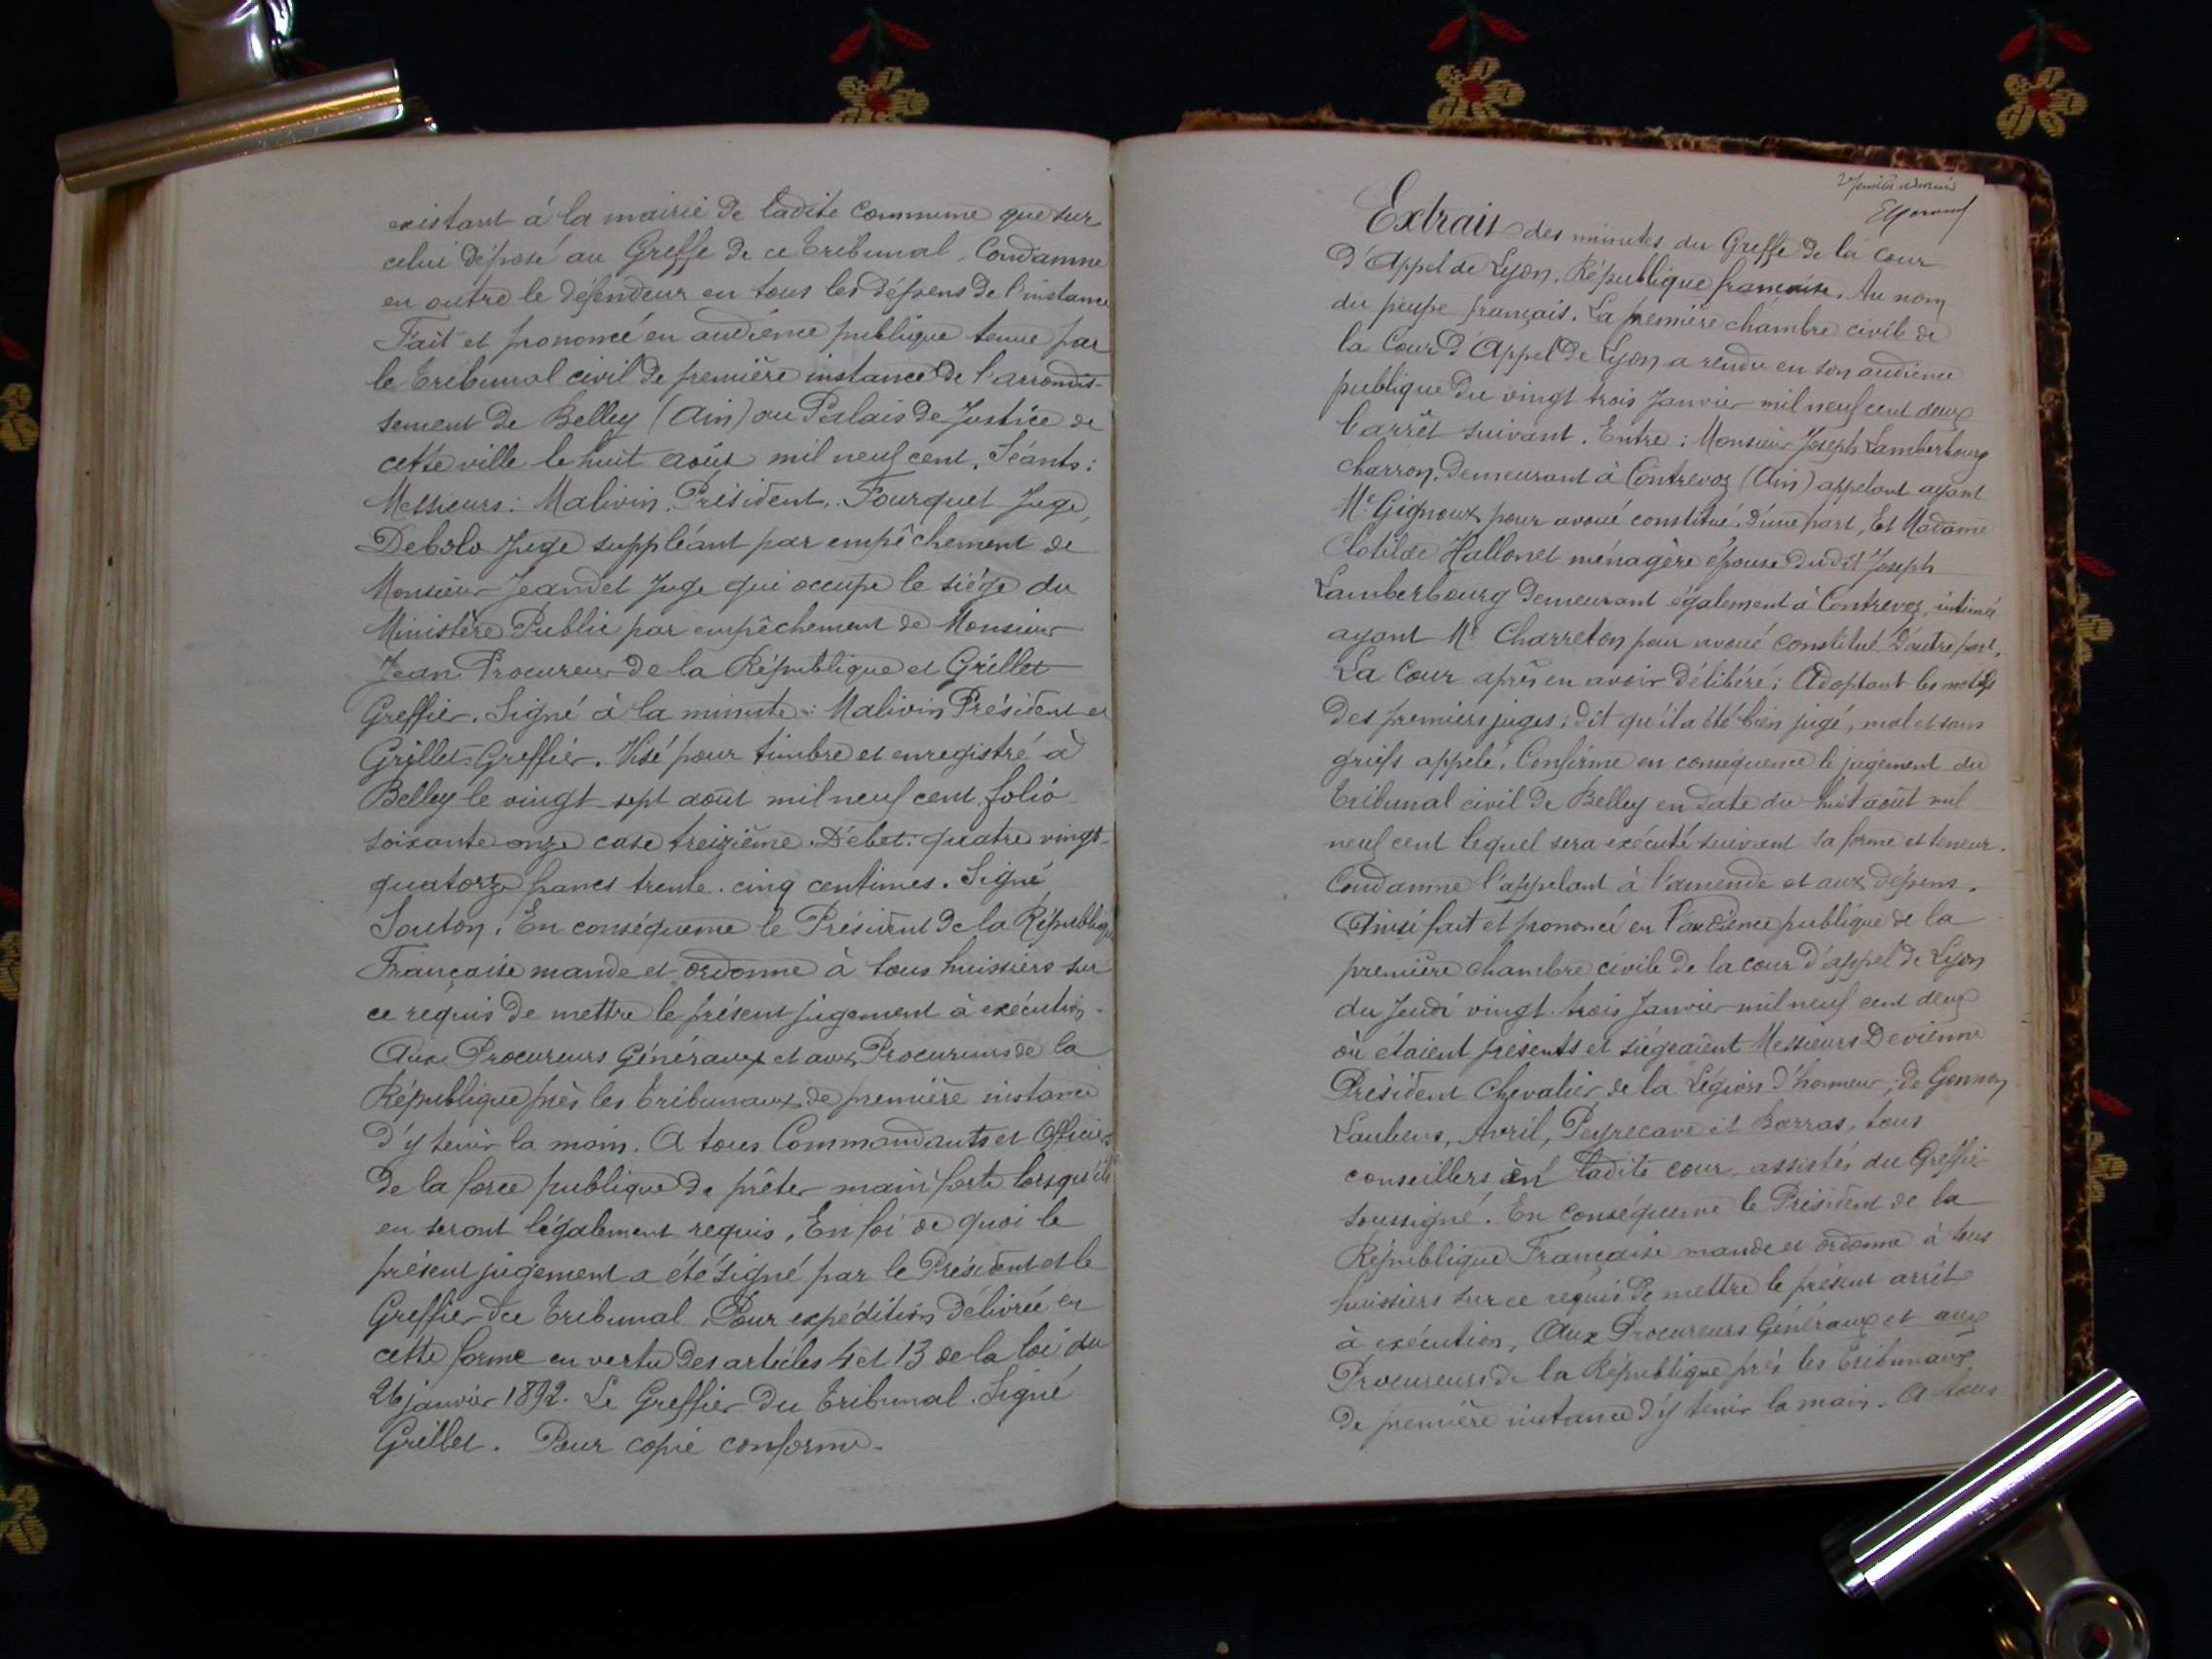 existant à la mairie de ladite Commune que sur
celui déposé au Greffe de ce tribunal, Condamne
en outre le défendeur en tous les dépens de l'instance
Fait et prononcé en audience publique tenue par
le tribunal civil de première instance de l'arrondis-
sement de Belley (Ain) au Palais de Justice de
cette ville le huit août mil neuf cent. Séants :
Messieurs : Malivin, Président, Fourquet Juge,
Juge suppléant par empêchement de
Monsieur Jeandet Juge qui occupe le siège du
Ministère Public par empêchement de Monsieur
Jean Procureur de la République et Grillet
Greffier. Signé à la minute : Malivin Président et
Grillet-Greffier. Visé pour timbre et enregistré à
Belley le vingt-sept août mil neuf cent, folio
soixante onze case treizième. Débet : quatre vingt-
quatorze francs trente-cinq centimes. Signé
Souton. En conséquence le Président de la République
Française mande et ordonne à tous huissiers sur
ce requis de mettre le présent jugement à exécution.
Aux Procureurs Généraux et aux Procureurs de la
République près les tribunaux de première instance
d'y tenir la main. A tous Commandants et Officiers
de la force publique de prêter main forte lorsqu'ils
en seront légalement requis, En foi de quoi le
présent jugement a été signé par le Président et le
Greffier du tribunal. Pour expédition délivrée en
cette forme en vertu des articles 4 et 13 de la loi du
26 janvier 1892. Le Greffier du tribunal. Signé
Grillet. Pour copie conforme.
Extrait des minutes du Greffe de la Cour
d'Appel de Lyon. République française. Au nom
du peupe français. La première chambre civile de
la Cour d'Appel de Lyon a rendu en son audience
publique du vingt trois Janvier mil neuf cent deux
l'arrêt suivant. Entre : Monsieur Joseph Lamberbourg
charron, demeurant à Contrevoz (Ain) appelant ayant
Me Gignoux pour avoué constitué, d'une part, Et Madame
Clotilde Hallonet ménagère épouse dudit Joseph
Lamberbourg demeurant également à Contrevoz, intimée
ayant Me Charreton pour avoué constitué d'autre part,
La Cour après en avoir délibéré ; Adoptant les motifs
des premiers juges ; dit qu'il a été bien jugé, mal et sans
griefs appelé. Confirme en conséquence le jugement du
tribunal civil de Belley en date du huit août mil
neuf cent lequel sera exécuté suivant sa forme et teneur.
Condamne l'appelant à l'amende et aux dépens.
Ainsi fait et prononcé en l'audience publique de la
première chambre civile de la cour d'appel de Lyon
du Jeudi vingt-trois Janvier mil neuf cent deux
où étaient présents et siégeaient Messieurs Devienne
Président Chevalier de la Légion d'honneur, de
Laubens, Avril, Peyrecave et Barras, tous
conseillers en ladite cour, assistés du Greffier
soussigné. En conséquence le Président de la
République Française mande et ordonne à tous
huissiers sur ce requis de mettre le présent arrêt
à exécution, Aux Procureurs Généraux et aux
Procureurs de la République près les tribunaux
de première instance d'y tenir la main. A tous